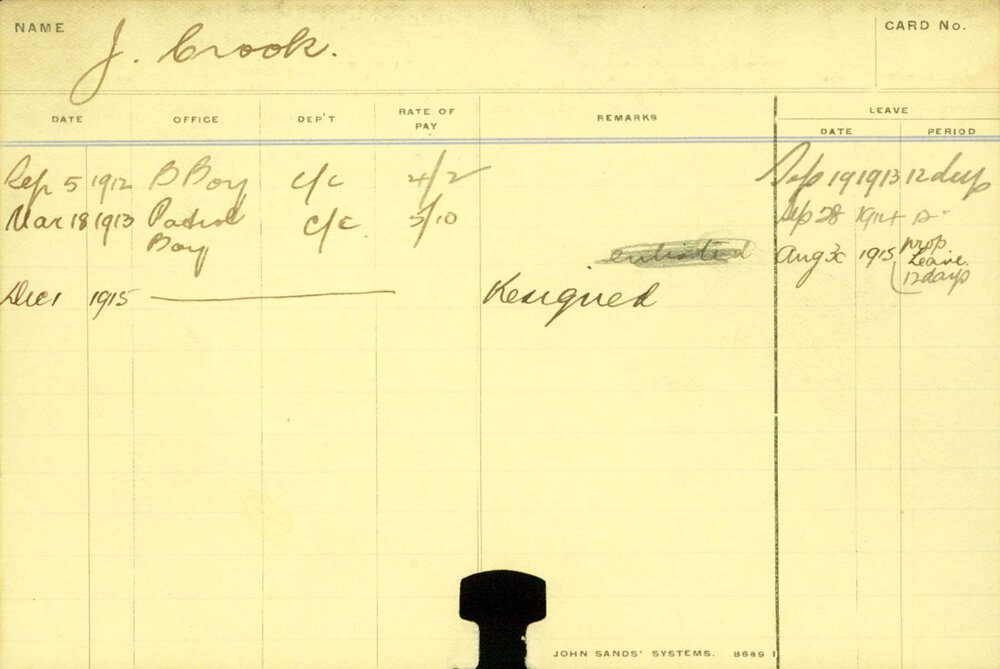 NAME J. Crook. CARD No.
LEAVE
DATE OFFICE DEP'T RATE OF PAY REMARKS DATE PERIOD
Sep 5 1912 B Boy c/c 4/2 Sep 19 1913 12 days
Mar 18 1913 Patrol Boy c/c. 5/10 Sep 28 1914 12
enlisted Aug 30 1915 prop Leave. 12 days
Dec 1 1915 Resigned
JOHN SANDS' SYSTEMS. 8689